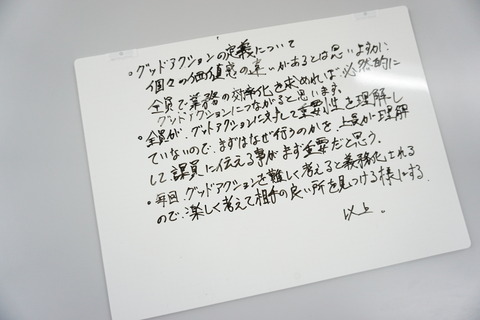 ・グッドアクションの定義について
個々の価値感の違いがあるとは思いますが、
全員で業務の効率化を求めれば、必然的に
グッドアクションにつながると思います。
・全員が、グッドアクションに対して重要性を理解し
ていないので、まずはなぜ行うのかを、上長が理解
して課員に伝える事がまず重要だと思う。
・毎回、グッドアクションを難しく考えると義務化される
ので、楽しく考えて相手の良い所を見つける様にする。
以上。